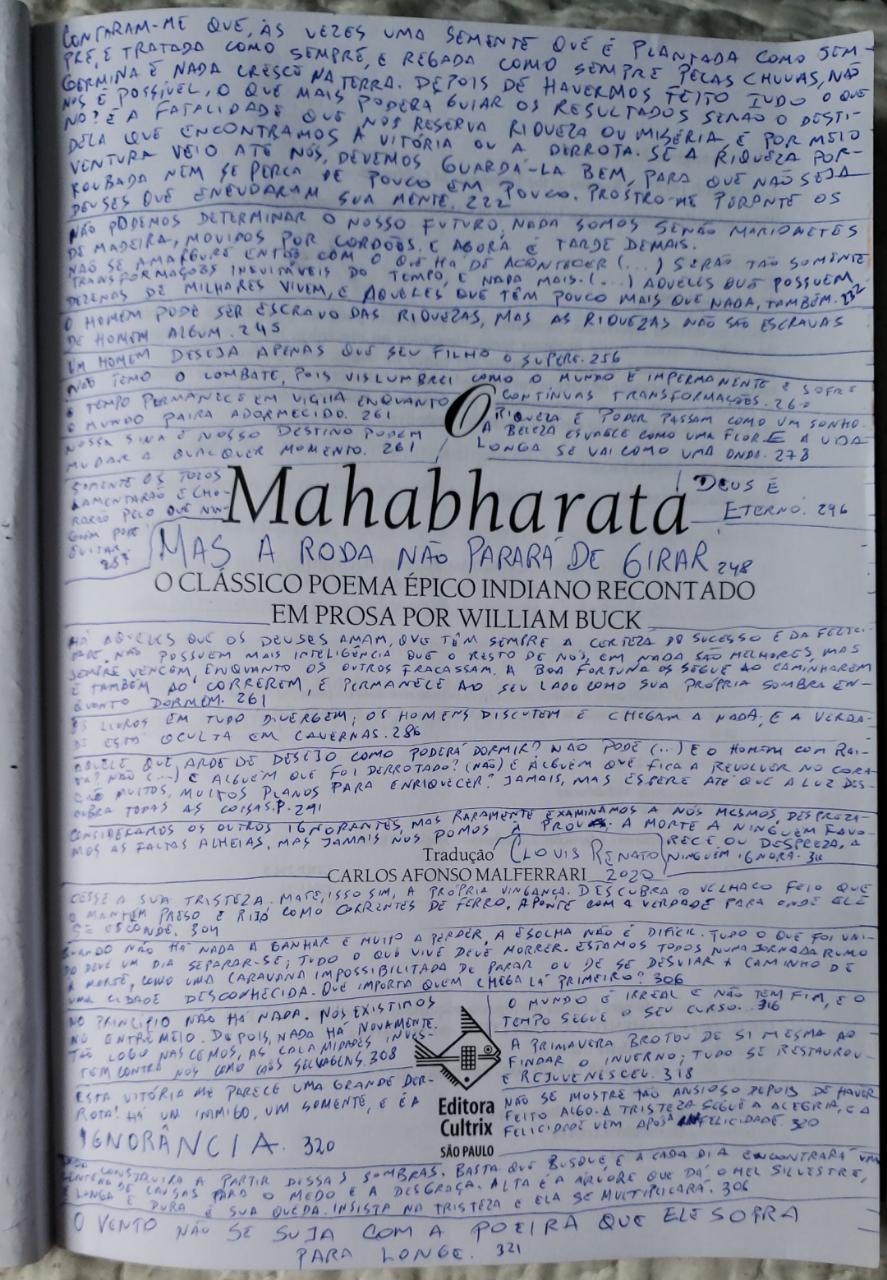 CONTARAM-ME QUE, ÀS VEZES UMA SEMENTE QUE É PLANTADA COMO SEM-
PRE, E TRATADA COMO SEMPRE, E REGADA COMO SEMPRE PELAS CHUVAS, NÃO
GERMINA E NADA CRESCE NA TERRA. DEPOIS DE HAVERMOS FEITO TUDO O QUE
NOS É POSSÍVEL, O QUE MAIS PODERÁ GUIAR OS RESULTADOS SENÃO O DESTI-
NO? É A FATALIDADE QUE NOS RESERVA RIQUEZA OU MISÉRIA, E POR MEIO
DELA QUE ENCONTRAMOS A VITÓRIA OU A DERROTA. SE A RIQUEZA POR-
VENTURA VEIO ATÉ NÓS, DEVEMOS GUARDÁ-LA BEM, PARA QUE NÃO SEJA
ROUBADA NEM SE PERCA DE POUCO EM POUCO. PROSTRO-ME PERANTE OS
DEUSES QUE ENLUDARAM SUA MENTE. 222
NÃO PODEMOS DETERMINAR O NOSSO FUTURO, NADA SOMOS SENÃO MARIONETES
DE MADEIRA, MOVIDOS POR CORDÕES. E AGORA É TARDE DEMAIS.
NÃO SE AMARGURE ENTÃO COM O QUE HÁ DE ACONTECER (...) SERÃO TÃO SOMENTE
TRANSFORMAÇÕES INEVITÁVEIS DO TEMPO, E NADA MAIS. (...) AQUELES QUE POSSUEM
DEZENAS DE MILHARES VIVEM, E AQUELES QUE TÊM POUCO MAIS QUE NADA, TAMBÉM. 232
O HOMEM PODE SER ESCRAVO DAS RIQUEZAS, MAS AS RIQUEZAS NÃO SÃO ESCRAVAS
DE HOMEM ALGUM. 245
UM HOMEM DESEJA APENAS QUE SEU FILHO O SUPERE. 256
NÃO TEMO O COMBATE, POIS VISLUMBREI COMO O MUNDO É IMPERMANENTE E SOFRE
CONTÍNUAS TRANSFORMAÇÕES. 260
O TEMPO PERMANECE EM VIGÍLIA ENQUANTO
O MUNDO PAIRA ADORMECIDO. 261
RIQUEZA E PODER PASSAM COMO UM SONHO.
A BELEZA ESVAECE COMO UMA FLOR E A VIDA
LONGA SE VAI COMO UMA ONDA. 278
NOSSA SINA E NOSSO DESTINO PODEM
MUDAR A QUALQUER MOMENTO. 261
SOMENTE OS TOLOS
LAMENTARÃO E CHO-
RARÃO PELO QUE NIN-
GUÉM PODE
EVITAR.
DEUS É
ETERNO. 296
O
Mahabharata
MAS A RODA NÃO PARARÁ DE GIRAR 248
O CLÁSSICO POEMA ÉPICO INDIANO RECONTADO
EM PROSA POR WILLIAM BUCK
HÁ AQUELES QUE OS DEUSES AMAM, QUE TÊM SEMPRE A CERTEZA DO SUCESSO E DA FELICI-
DADE. NÃO POSSUEM MAIS INTELIGÊNCIA QUE O RESTO DE NÓS, EM NADA SÃO MELHORES, MAS
SEMPRE VENCEM, ENQUANTO OS OUTROS FRACASSAM. A BOA FORTUNA OS SEGUE AO CAMINHAREM
E TAMBÉM AO CORREREM, E PERMANECE AO SEU LADO COMO SUA PRÓPRIA SOMBRA EN-
QUANTO DORMEM. 261
OS LIVROS EM TUDO DIVERGEM; OS HOMENS DISCUTEM E CHEGAM A NADA; E A VERDA-
DE ESTÁ OCULTA EM CAVERNAS. 286
AQUELE QUE ARDE DE DESEJO COMO PODERÁ DORMIR? NÃO PODE (...) E O HOMEM COM RAI-
VA? NÃO (...) E ALGUÉM QUE FOI DERROTADO? (NÃO) E ALGUÉM QUE FICA A REVOLVER NO CORA-
ÇÃO MUITOS, MUITOS PLANOS PARA ENRIQUECER? JAMAIS, MAS ESPERE ATÉ QUE A LUZ DES-
CUBRA TODAS AS COISAS. P. 291
CONSIDERAMOS OS OUTROS IGNORANTES, MAS RARAMENTE EXAMINAMOS A NÓS MESMOS, DESPREZA-
MOS AS FALTAS ALHEIAS, MAS JAMAIS NOS POMOS À PROVA. A MORTE A NINGUÉM FAVO-
RECE OU DESPREZA, A
NINGUÉM IGNORA.
Tradução
CARLOS AFONSO MALFERRARI
CLOVIS RENATO
2020
CESSE A SUA TRISTEZA. MATE, ISSO SIM, A PRÓPRIA VINGANÇA. DESCUBRA O VELHACO FEIO QUE
O MANTÉM PRESO E RIJO COMO CORRENTES DE FERRO. APONTE COM A VERDADE PARA ONDE ELE
SE ESCONDE. 304
QUANDO NÃO HÁ NADA A GANHAR E MUITO A PERDER, A ESCOLHA NÃO É DIFÍCIL. TUDO O QUE FOI UNI-
DO DEVE UM DIA SEPARAR-SE; TUDO O QUE VIVE DEVE MORRER. ESTAMOS TODOS NUMA JORNADA RUMO
À MORTE, COMO UMA CARAVANA IMPOSSIBILITADA DE PARAR OU DE SE DESVIAR A CAMINHO DE
UMA CIDADE DESCONHECIDA. QUE IMPORTA QUEM CHEGA LÁ PRIMEIRO? 306
NO PRINCÍPIO NÃO HÁ NADA. NÓS EXISTIMOS
NO ENTREMEIO. DEPOIS, NADA HÁ NOVAMENTE.
TÃO LOGO NASCEMOS, AS CALAMIDADES INVES-
TEM CONTRA NÓS COMO CÃES SELVAGENS. 308
ESTA VITÓRIA ME PARECE UMA GRANDE DER-
ROTA! HÁ UM INIMIGO, UM SOMENTE, E É A
IGNORÂNCIA. 320
O MUNDO É IRREAL E NÃO TEM FIM, E O
TEMPO SEGUE O SEU CURSO. 316
A PRIMAVERA BROTOU DE SI MESMA AO
FINDAR O INVERNO; TUDO SE RESTAUROU
E REJUVENESCEU. 318
NÃO SE MOSTRE TÃO ANSIOSO DEPOIS DE HAVER
FEITO ALGO. A TRISTEZA SEGUE A ALEGRIA, E A
FELICIDADE VEM APÓS A INFELICIDADE. 320
Editora
Cultrix
SÃO PAULO
CONSTRUIRÁ A PARTIR DESSAS SOMBRAS. BASTA QUE BUSQUE, E A CADA DIA ENCONTRARÁ UMA
DE CAUSAS PARA O MEDO E A DESGRAÇA. ALTA É A ÁRVORE QUE DÁ O MEL SILVESTRE,
E LONGA E DURA É SUA QUEDA. INSISTA NA TRISTEZA E ELA SE MULTIPLICARÁ. 306
O VENTO NÃO SE SUJA COM A POEIRA QUE ELE SOPRA
PARA LONGE. 321